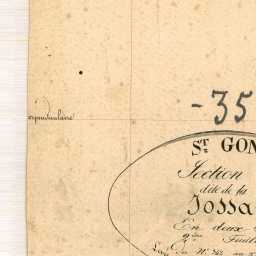 -35
erpendiculaire
ST. GON
Section
dite de la
JOSSA
En deux
Feuill